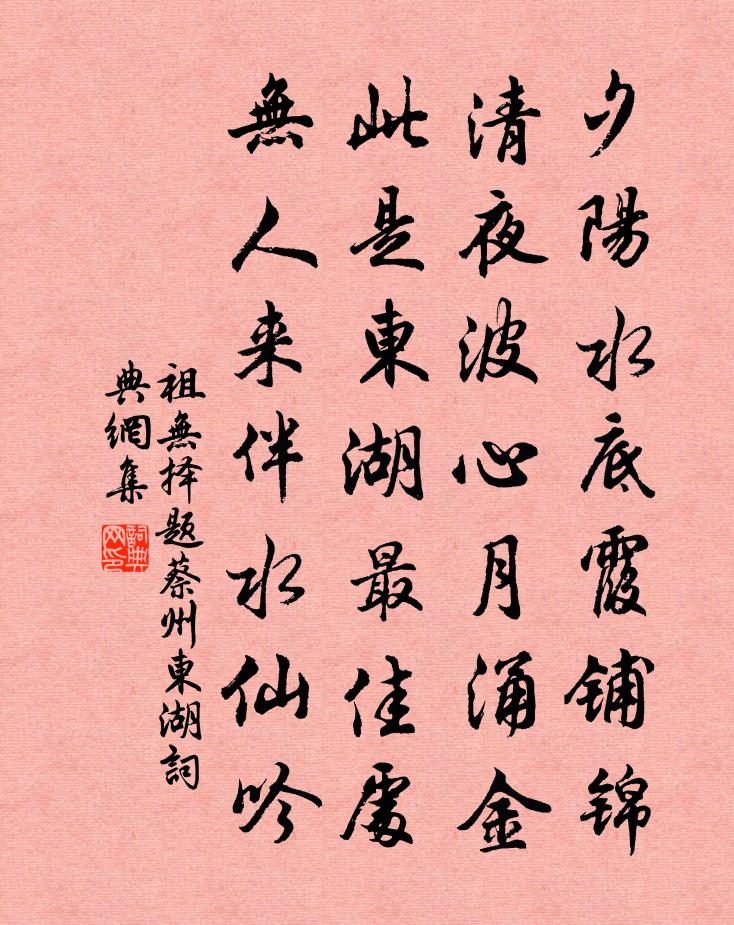 夕陽水底霞铺锦
清夜波心月涌金
此是東湖最佳處
無人来伴水仙吟
祖無择題蔡州東湖詞
典網集
詞典
网印